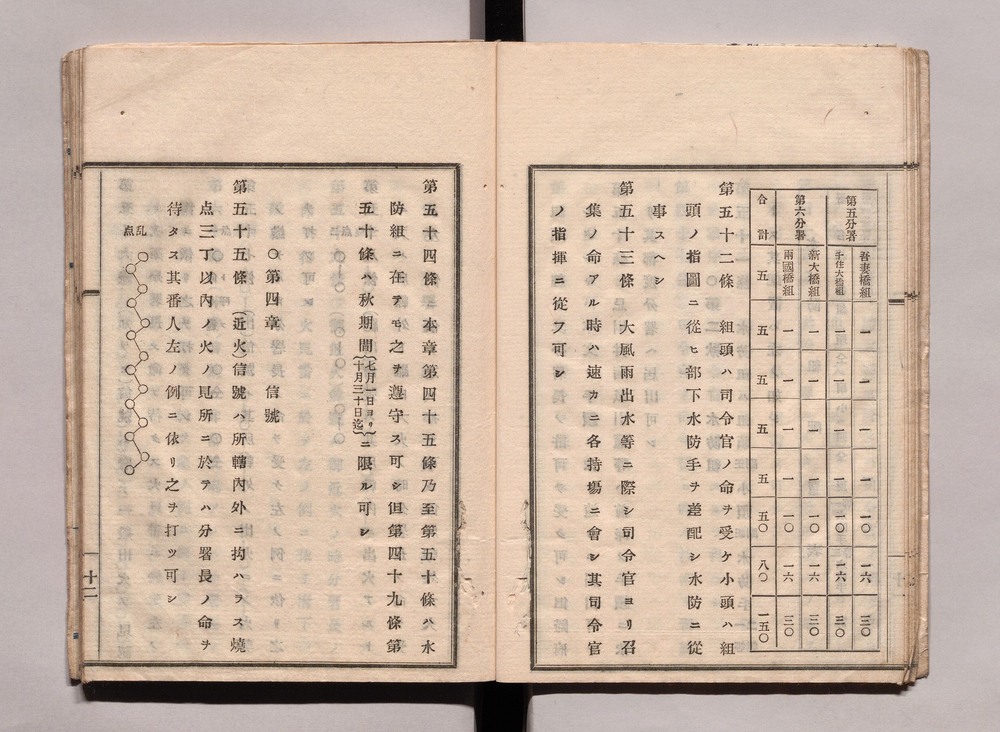 第五分署
吾妻橋組 一 一 一 一 一〇 一六 三〇
千住大橋組 一 一 一 一 一〇 一六 三〇
第六分署
新大橋組 一 一 一 一 一〇 一六 三〇
兩國橋組 一 一 一 一 一〇 一六 三〇
合計 五 五 五 五 五 五〇 八〇 一五〇
第五十二條 組頭ハ司令官ノ命ヲ受ケ小頭ハ組
頭ノ指圖ニ從ヒ部下水防手ヲ差配シ水防ニ從
事スヘシ
第五十三條 大風雨出水等ニ際シ司令官ヨリ召
集ノ命アル時ハ速カニ各持塲ニ會シ其司令官
ノ指揮ニ從フ可シ
第五十四條 本章第四十五條乃至第五十條ハ水
防組ニ在テモ之ヲ遵守ス可シ但第四十九條第
五十條ハ秋期間(七月一日ヨリ十月三十日迄)ニ限ル可シ
〇第四章 信號
第五十五條 (近火)信號ハ所轄內外ニ拘ハラス燒
点三丁以內ノ火ノ見所ニ於テハ分署長ノ命ヲ
待タス其番人左ノ例ニ依リ之ヲ打ツ可シ
乱点
十二